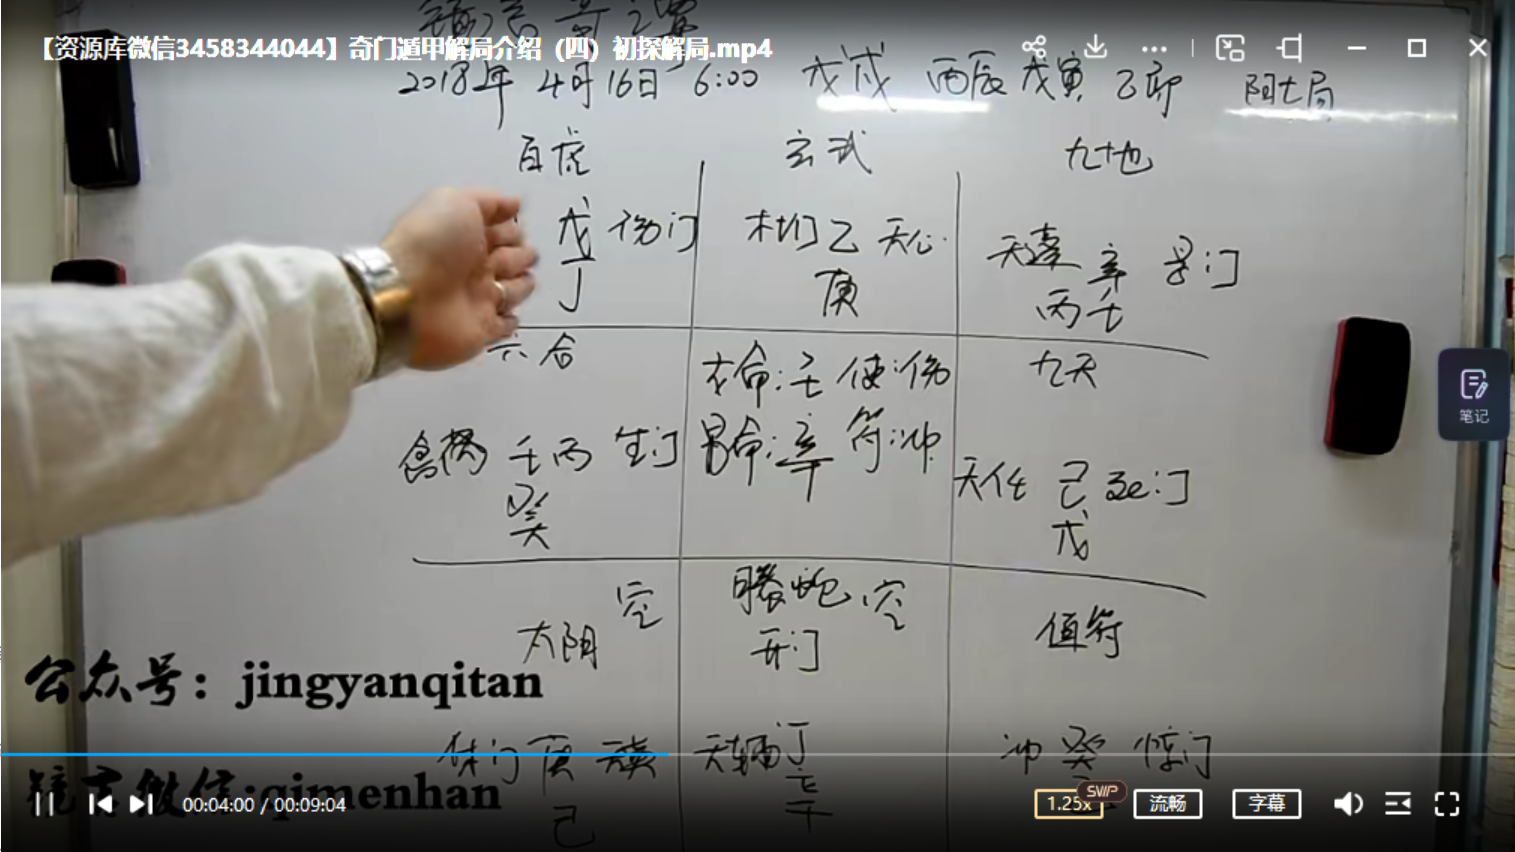 【资源库微信3458344044】奇门遁甲解局介绍（四）初探解局.mp4
2018年 4月16日 6:00 戊戌 丙辰 戊寅 乙卯 阳七局
白虎 玄武 九地
戊 伤门 杜门 乙 天心 天蓬 辛 景门
丁 庚 丙 壬
六合 女命:壬 使:伤 九天
禽芮 壬丙 生门 男命:辛 符:冲 天任 己 死门
癸 戊
太阴 空 螣蛇 空 值符
开门
公众号：jingyanqitan
休门 庚 天英 天辅 丁 冲 癸 惊门
镜言微信:qimenhan
己 辛
00:04:00 / 00:09:04
1.25x SVIP 流畅 字幕
笔记